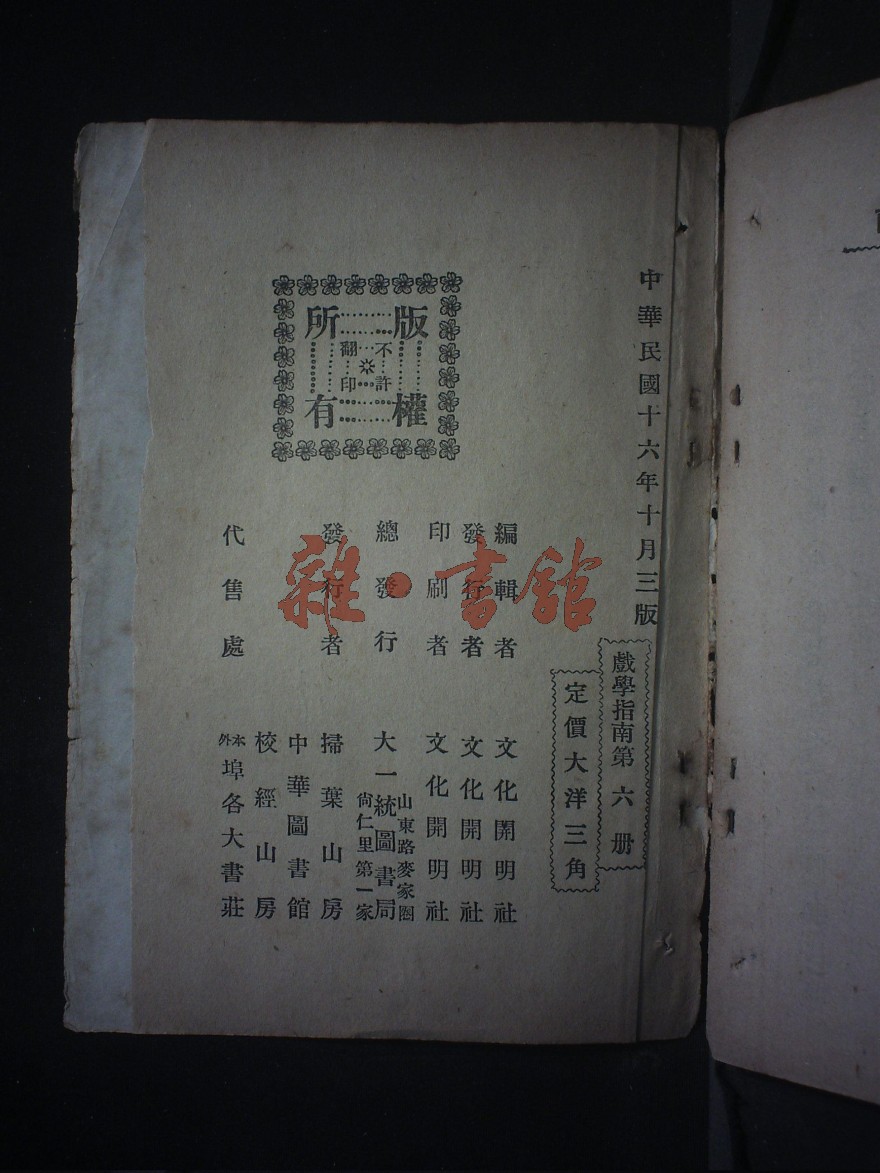 中華民國十六年十月三版
戲學指南第六册
定價大洋三角
編輯者 文化開明社
發行者 文化開明社
印刷者 文化開明社
總發行 大一統圖書局
山東路麥家圈
尙仁里第一家
發行者 掃葉山房
中華圖書館
校經山房
代售處 本外埠各大書莊
版權所有
不許翻印
雜·書館